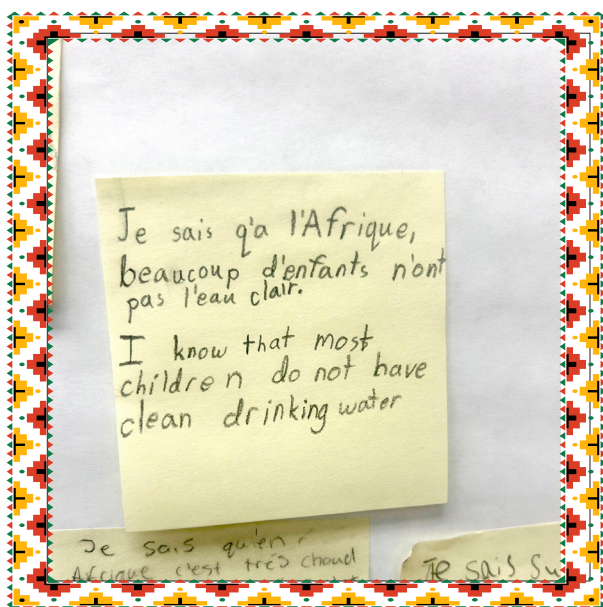 Je sais q'a l'Afrique,
beaucoup d'enfants n'ont
pas l'eau clair.
I know that most
children do not have
clean drinking water
Je sais qu'en
Afrique c'est très chaud
Je sais